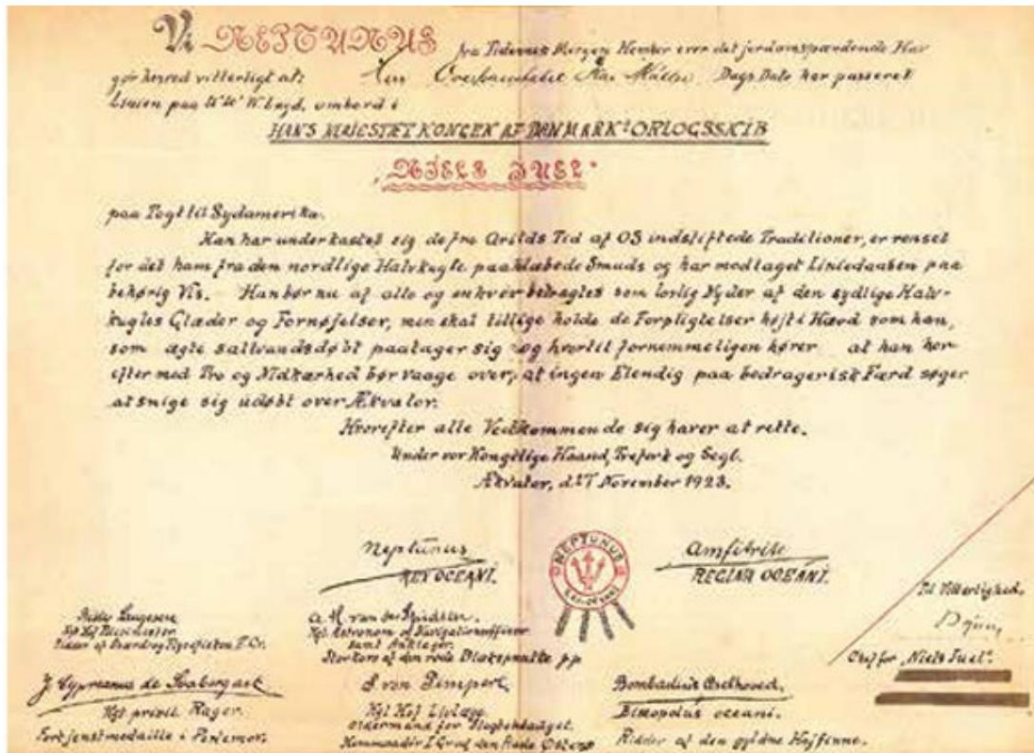 Vi NEPTUNUS fra Tidernes Morgen Hersker over det jordomspændende Hav
gør herved vitterligt at: Dags Dato har passeret
Linien paa
HANS MAJESTÆT KONGEN AF DANMARKS ORLOGSSKIB
"NIELS JUEL"
paa Togt til Sydamerika.
Han har underkastet sig de fra Arilds Tid af OS indstiftede Traditioner, er renset
for det ham fra den nordlige Halvkugle paaklæbede Smuds og har modtaget Liniedaaben paa
behørig Vis. - Han bør nu af alle og enhver betragtes som lovlig Nyder af den sydlige Halv-
kugles Glæder og Fornøjelser, men skal tillige holde de Forpligtelser højt i Hævd som han,
som ægte saltvandsdøbt paatager sig og hvortil fornemmeligen hører at han her
efter med Tro og Nidkærhed bør vaage over, at ingen Elendig paa bedragerisk Færd søger
at snige sig udøbt over Ækvator.
Hvorefter alle Vedkommende sig haver at rette.
Under vor Kongelige Haand, Trefork og Segl.
Ækvator, d. 27 November 1923.
Neptunus
REX OCEANI.
NEPTUNUS
Amfitrite
REGINA OCEANI.
Til Vitterlighed.
Chef for „Niels Juel".
Kgl. Astronom og Navigationsofficer
samt Anklager.
Storkors af den røde Blæksprutte p.p.
J. Cyprianus de
Kgl. privil. Rager.
Fortjenstmedaille i Perlemor.
Kgl. Hof Livlæge
Oldermand for
Kommandør I. Grad
Bombadius
Biskopolus oceani.
Ridder af den gyldne Hajfinne.